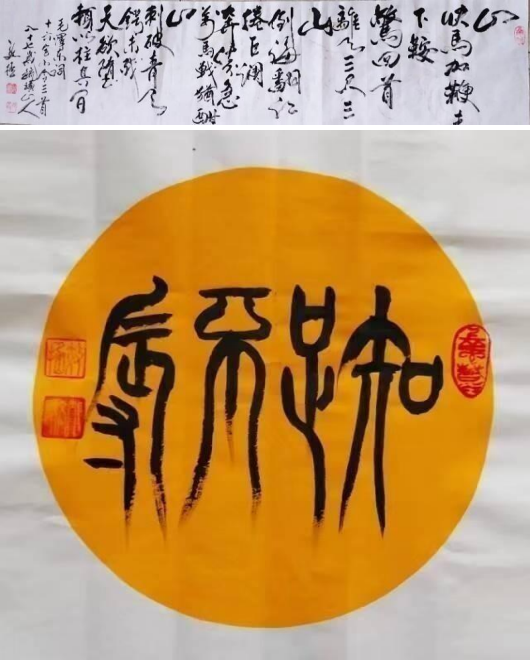 山
快馬加鞭未
下鞍
驚回首
離天三尺三
山
倒海翻江
捲巨瀾
奔騰急
萬馬戰猶酣
山
刺破青天
鍔未殘
天欲墮
賴以拄其間
毛澤東詞
十六字令三首
八十七歲山人
知足不辱